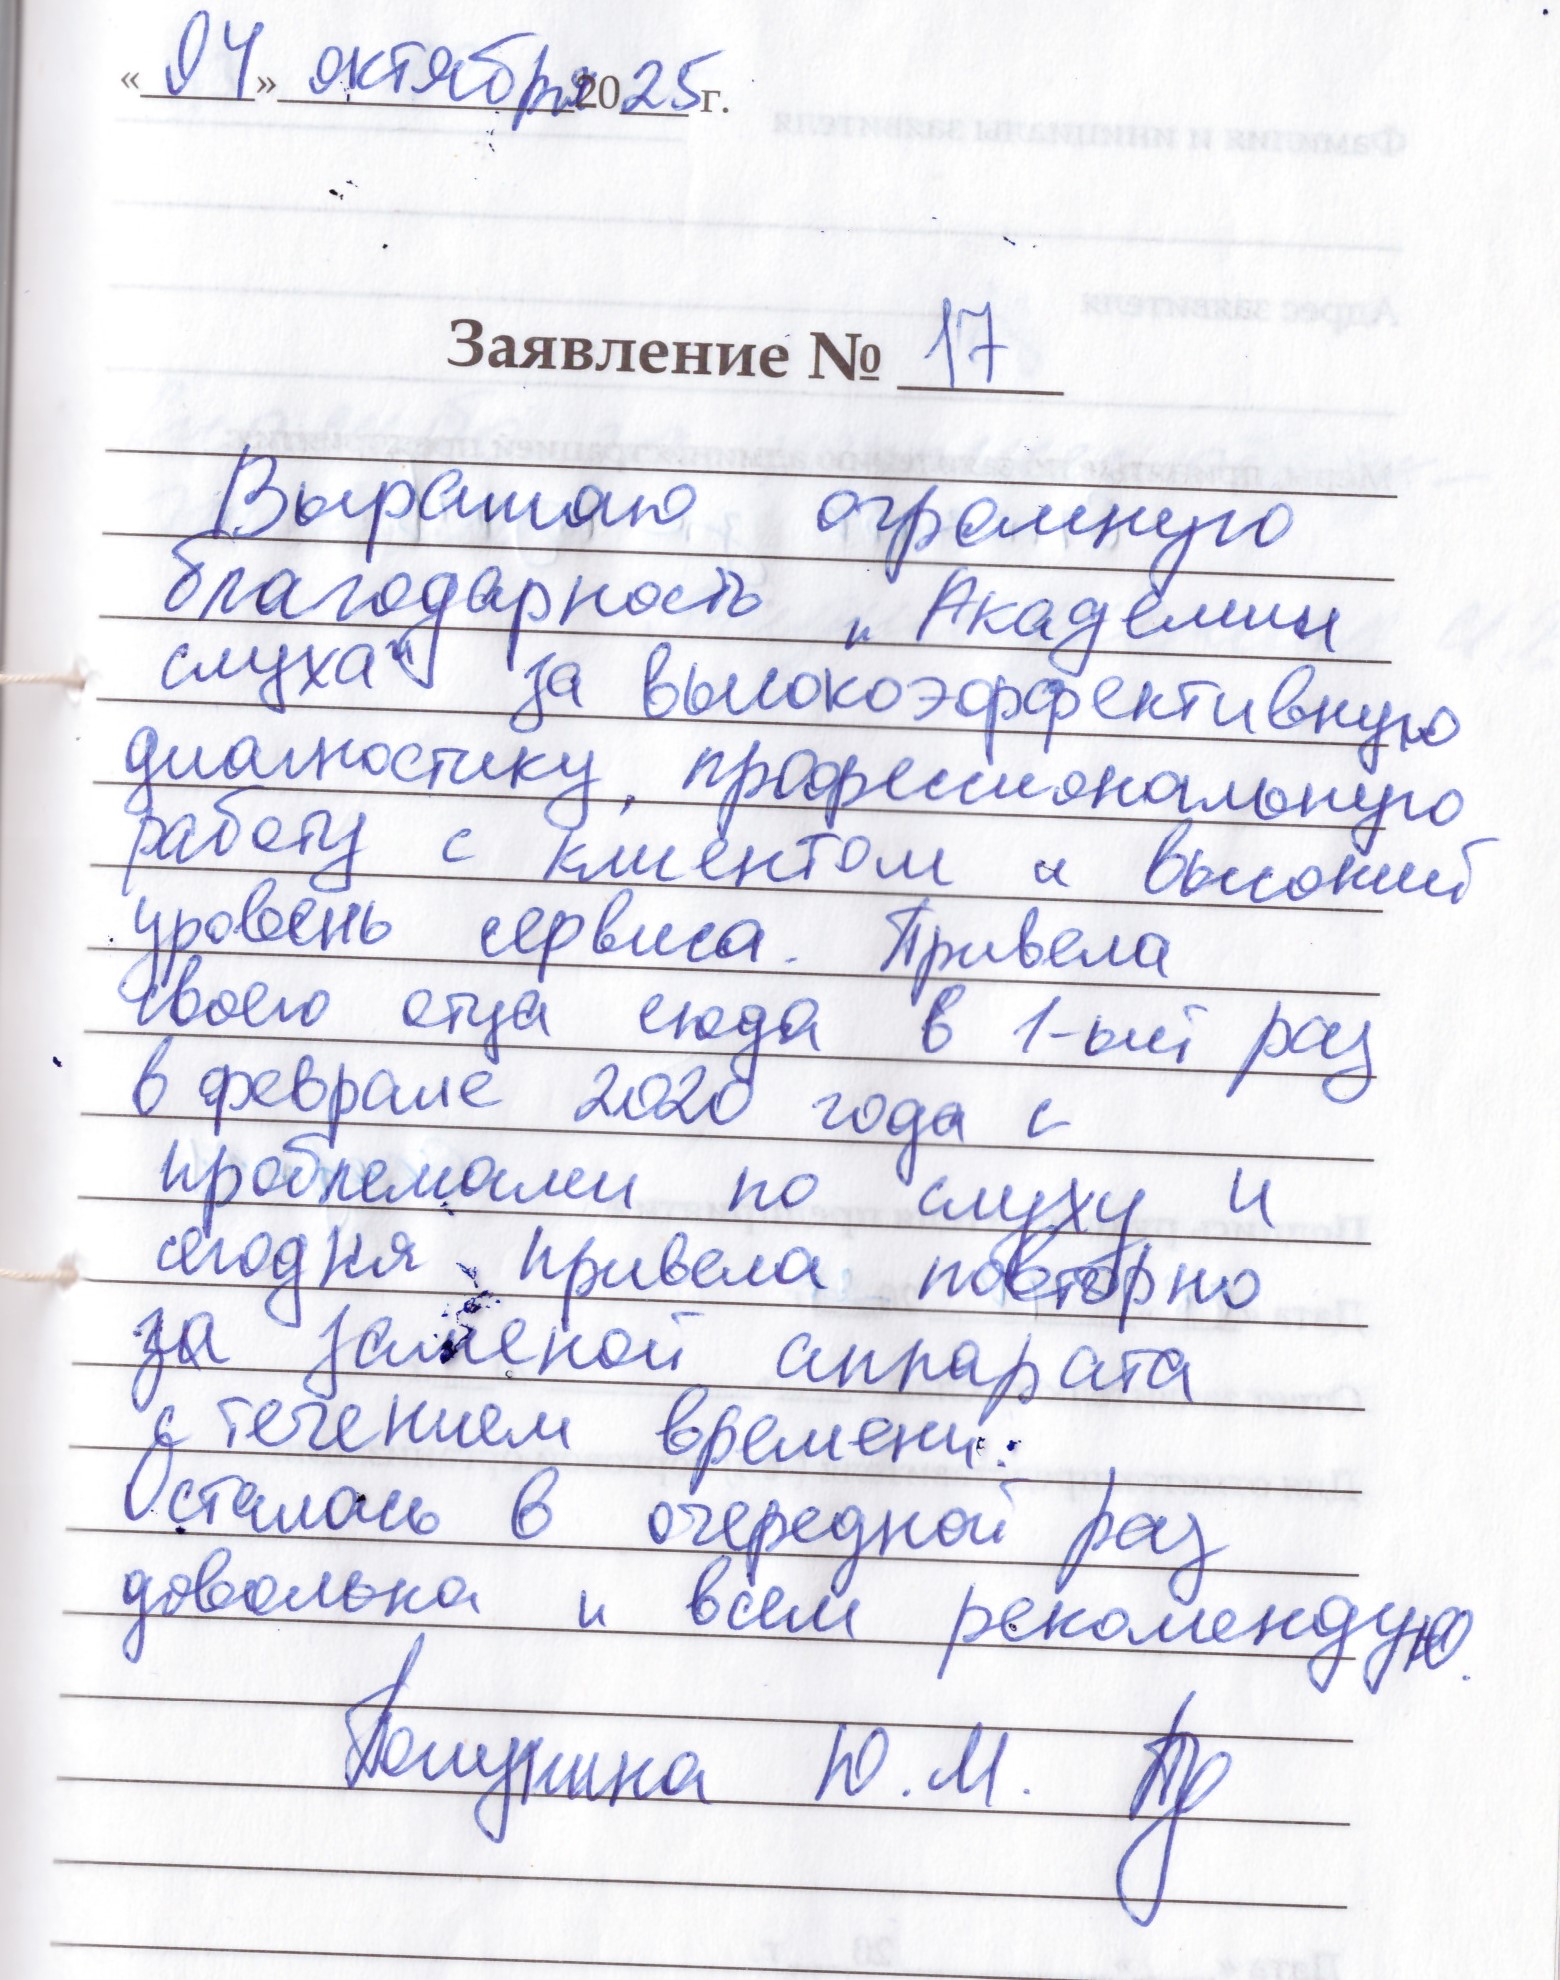 «04» октября 2025 г.
Заявление № 17
Выражаю огромную
благодарность „Академии
слуха“ за высокоэффективную
диагностику, профессиональную
работу с клиентом и высокий
уровень сервиса. Привела
своего отца сюда в 1-ый раз
в феврале 2020 года с
проблемами по слуху и
сегодня привела повторно
за заменой аппарата
с течением времени.
Осталась в очередной раз
довольна и всем рекомендую.
Ю.М.